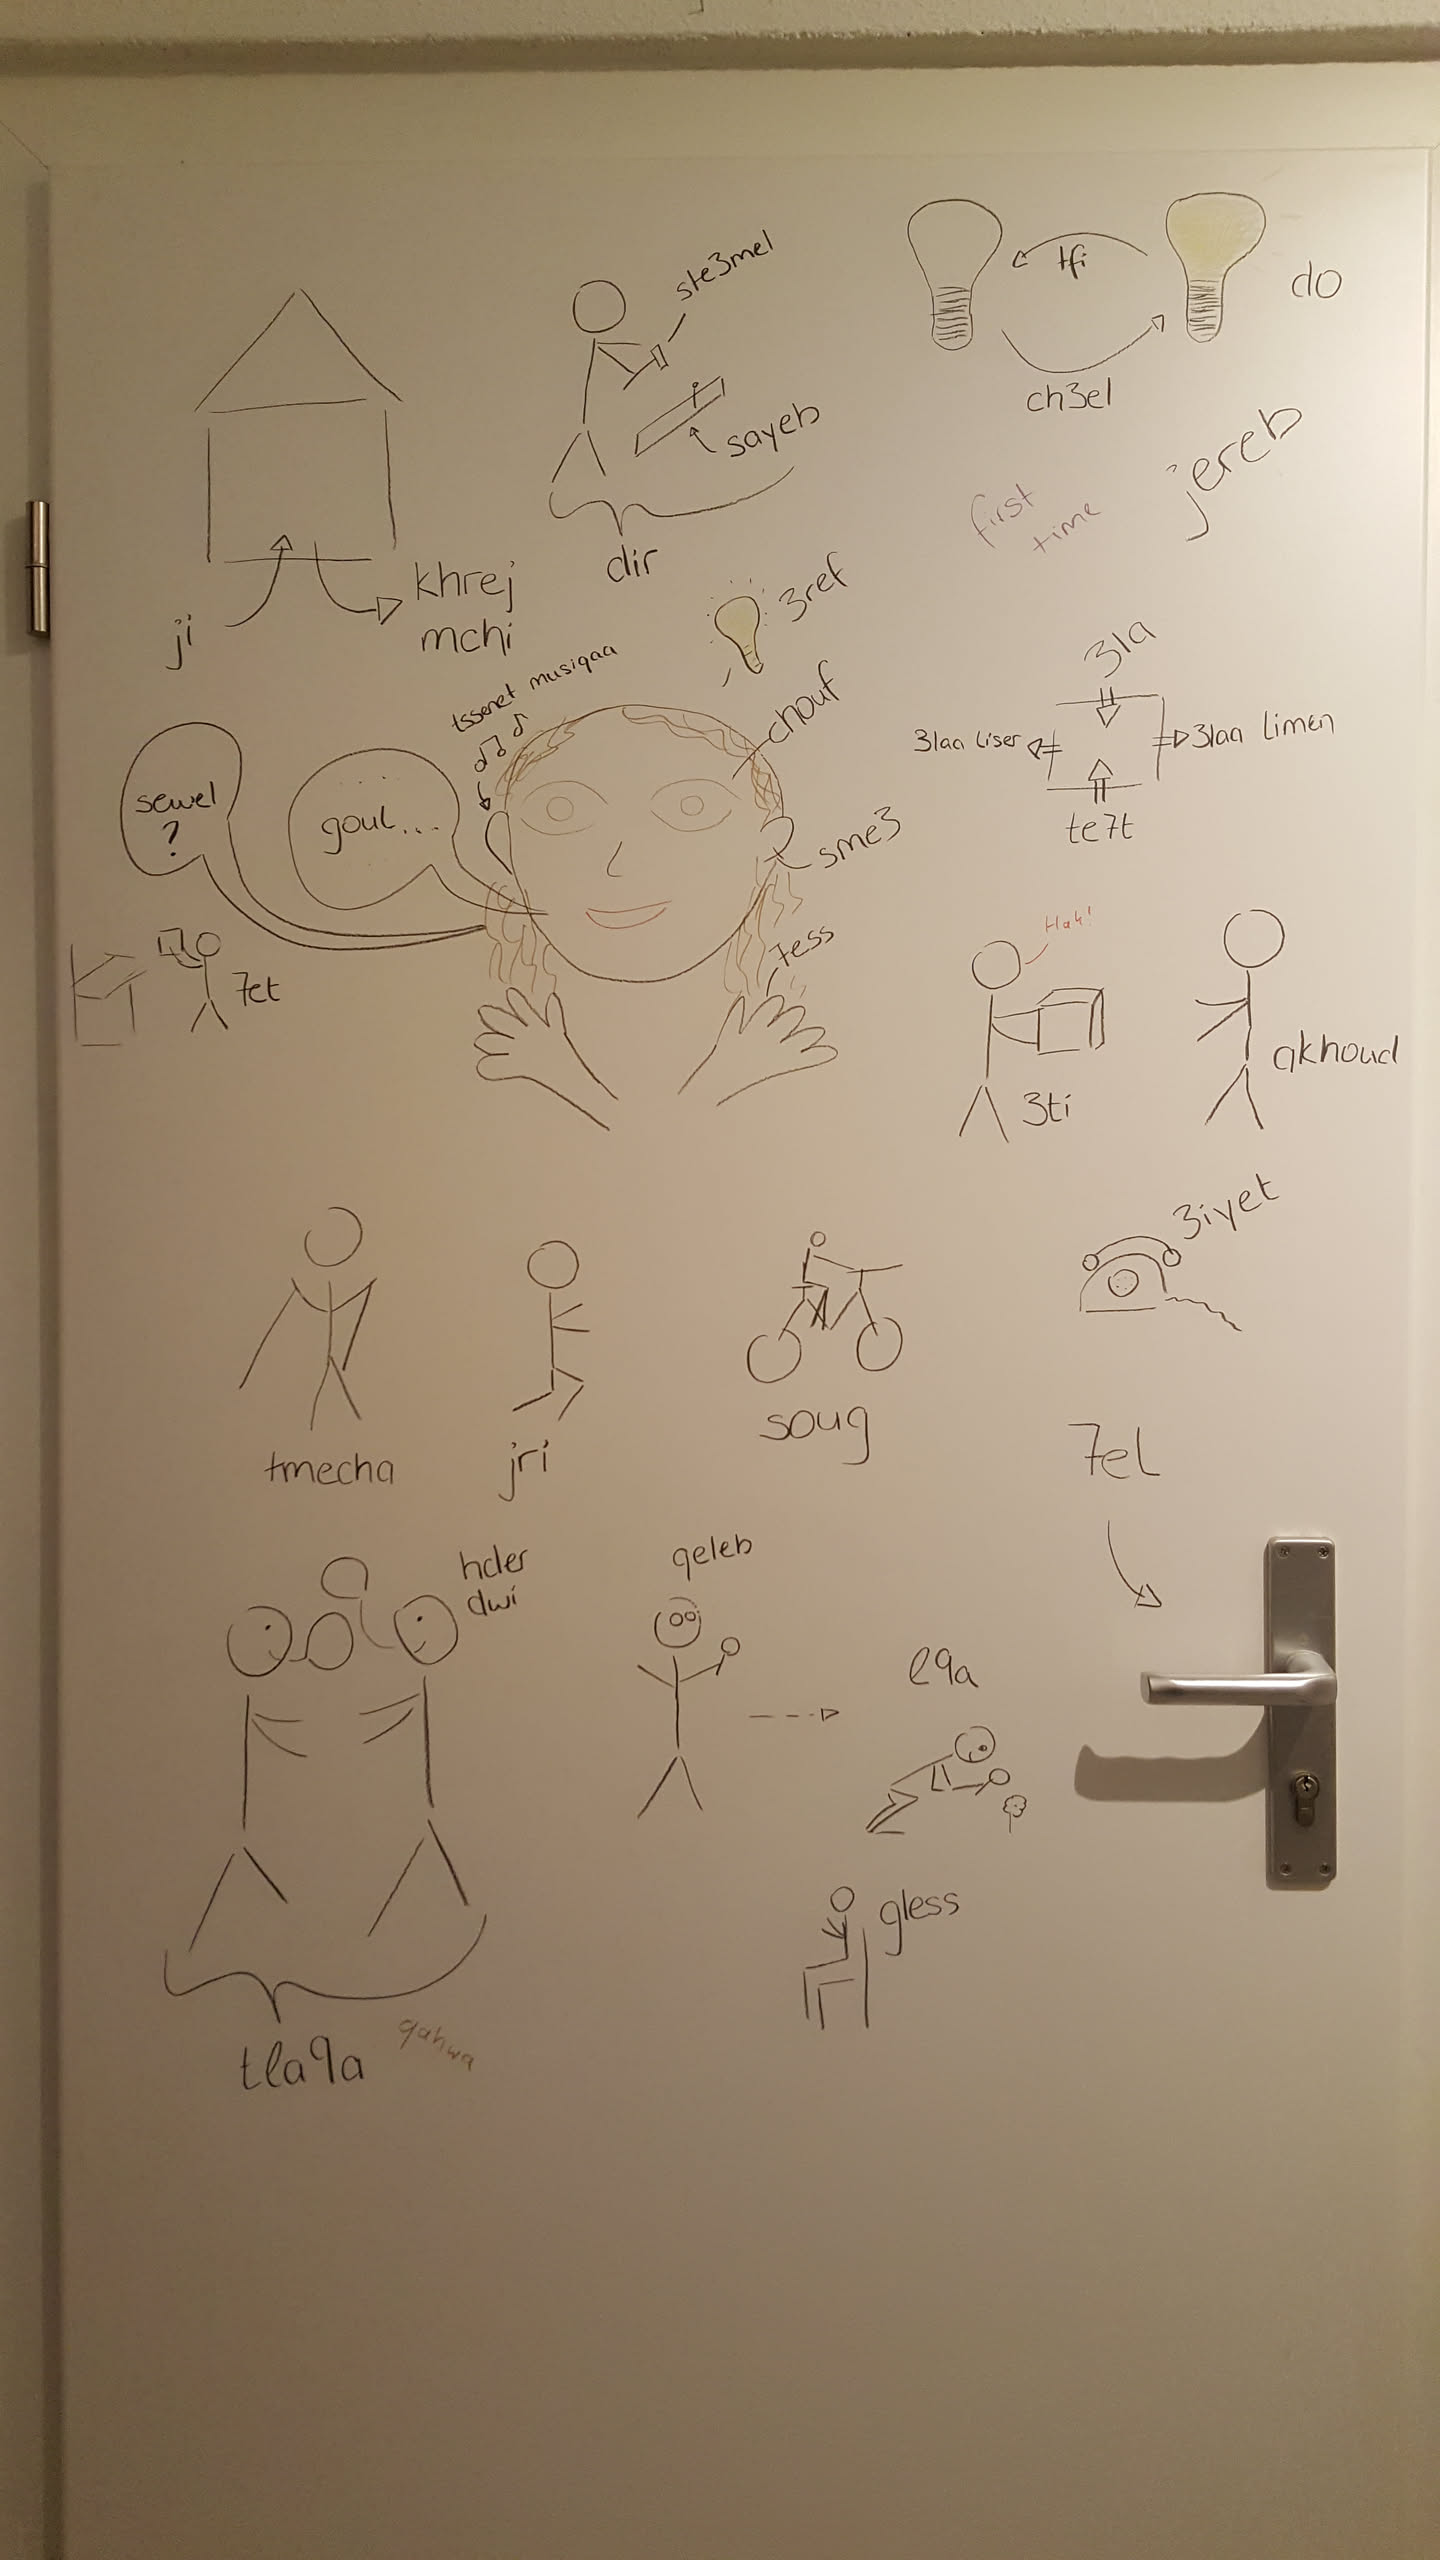 ste3mel
tfi
do
ch3el
sayeb
jereb
first
time
dir
khrej
mchi
ji
3ref
tssenet musiqaa
chouf
3la
3laa liser
3laa limen
te7t
sewel
?
goul...
sme3
7ess
7et
Hak!
3ti
akhoud
3iyet
tmecha
jri
soug
7el
hder
dwi
qeleb
l9a
gless
tla9a
qahwa